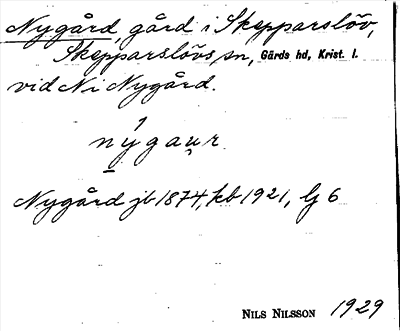 Nygård, gård i Skepparslöv,
Skepparslövs sn, Gärds hd, Krist. l.
vid N i Nygård.
nýgau̯r
Nygård jb 1874, kb 1921, lj 6
NILS NILSSON 1929